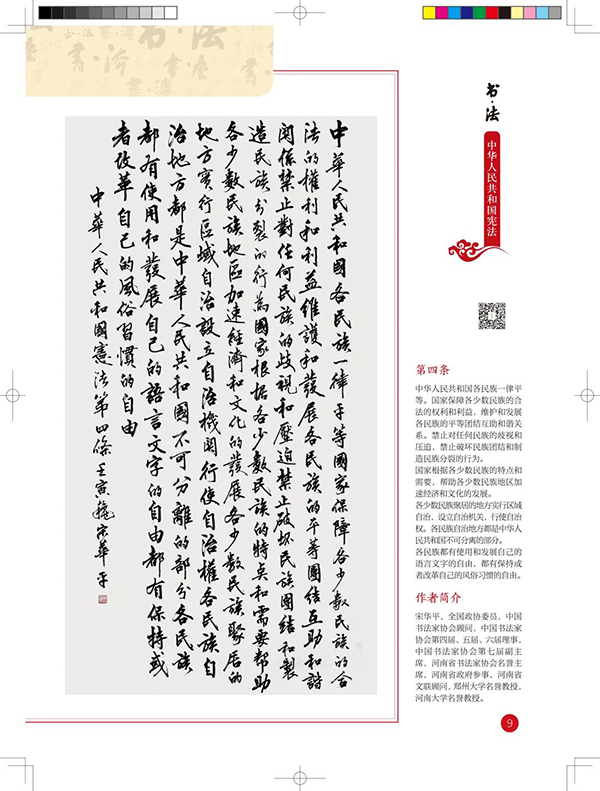 书·法
中华人民共和国宪法
中華人民共和國各民族一律平等國家保障各少數民族的合
法的權利和利益維護和發展各民族的平等團結互助和諧
関係禁止對任何民族的歧視和壓迫禁止破坏民族團結和製
造民族分裂的行為國家根据各少數民族的特点和需要幫助
各少數民族地區加速經濟和文化的發展各少數民族聚居的
地方實行區域自治設立自治機関行使自治權各民族自
治地方都是中華人民共和國不可分離的部分各民族
都有使用和發展自己的語言文字的自由都有保持或
者改革自己的風俗習慣的自由
中華人民共和國憲法第四條壬寅穐宋華平
第四条
中华人民共和国各民族一律平
等。国家保障各少数民族的合
法的权利和利益，维护和发展
各民族的平等团结互助和谐关
系。禁止对任何民族的歧视和
压迫，禁止破坏民族团结和制
造民族分裂的行为。
国家根据各少数民族的特点和
需要，帮助各少数民族地区加
速经济和文化的发展。
各少数民族聚居的地方实行区域
自治，设立自治机关，行使自治
权。各民族自治地方都是中华人
民共和国不可分离的部分。
各民族都有使用和发展自己的
语言文字的自由，都有保持或
者改革自己的风俗习惯的自由。
作者简介
宋华平，全国政协委员，中国
书法家协会顾问，中国书法家
协会第四届、五届、六届理事，
中国书法家协会第七届副主
席，河南省书法家协会名誉主
席，河南省政府参事，河南省
文联顾问，郑州大学名誉教授，
河南大学名誉教授。
9